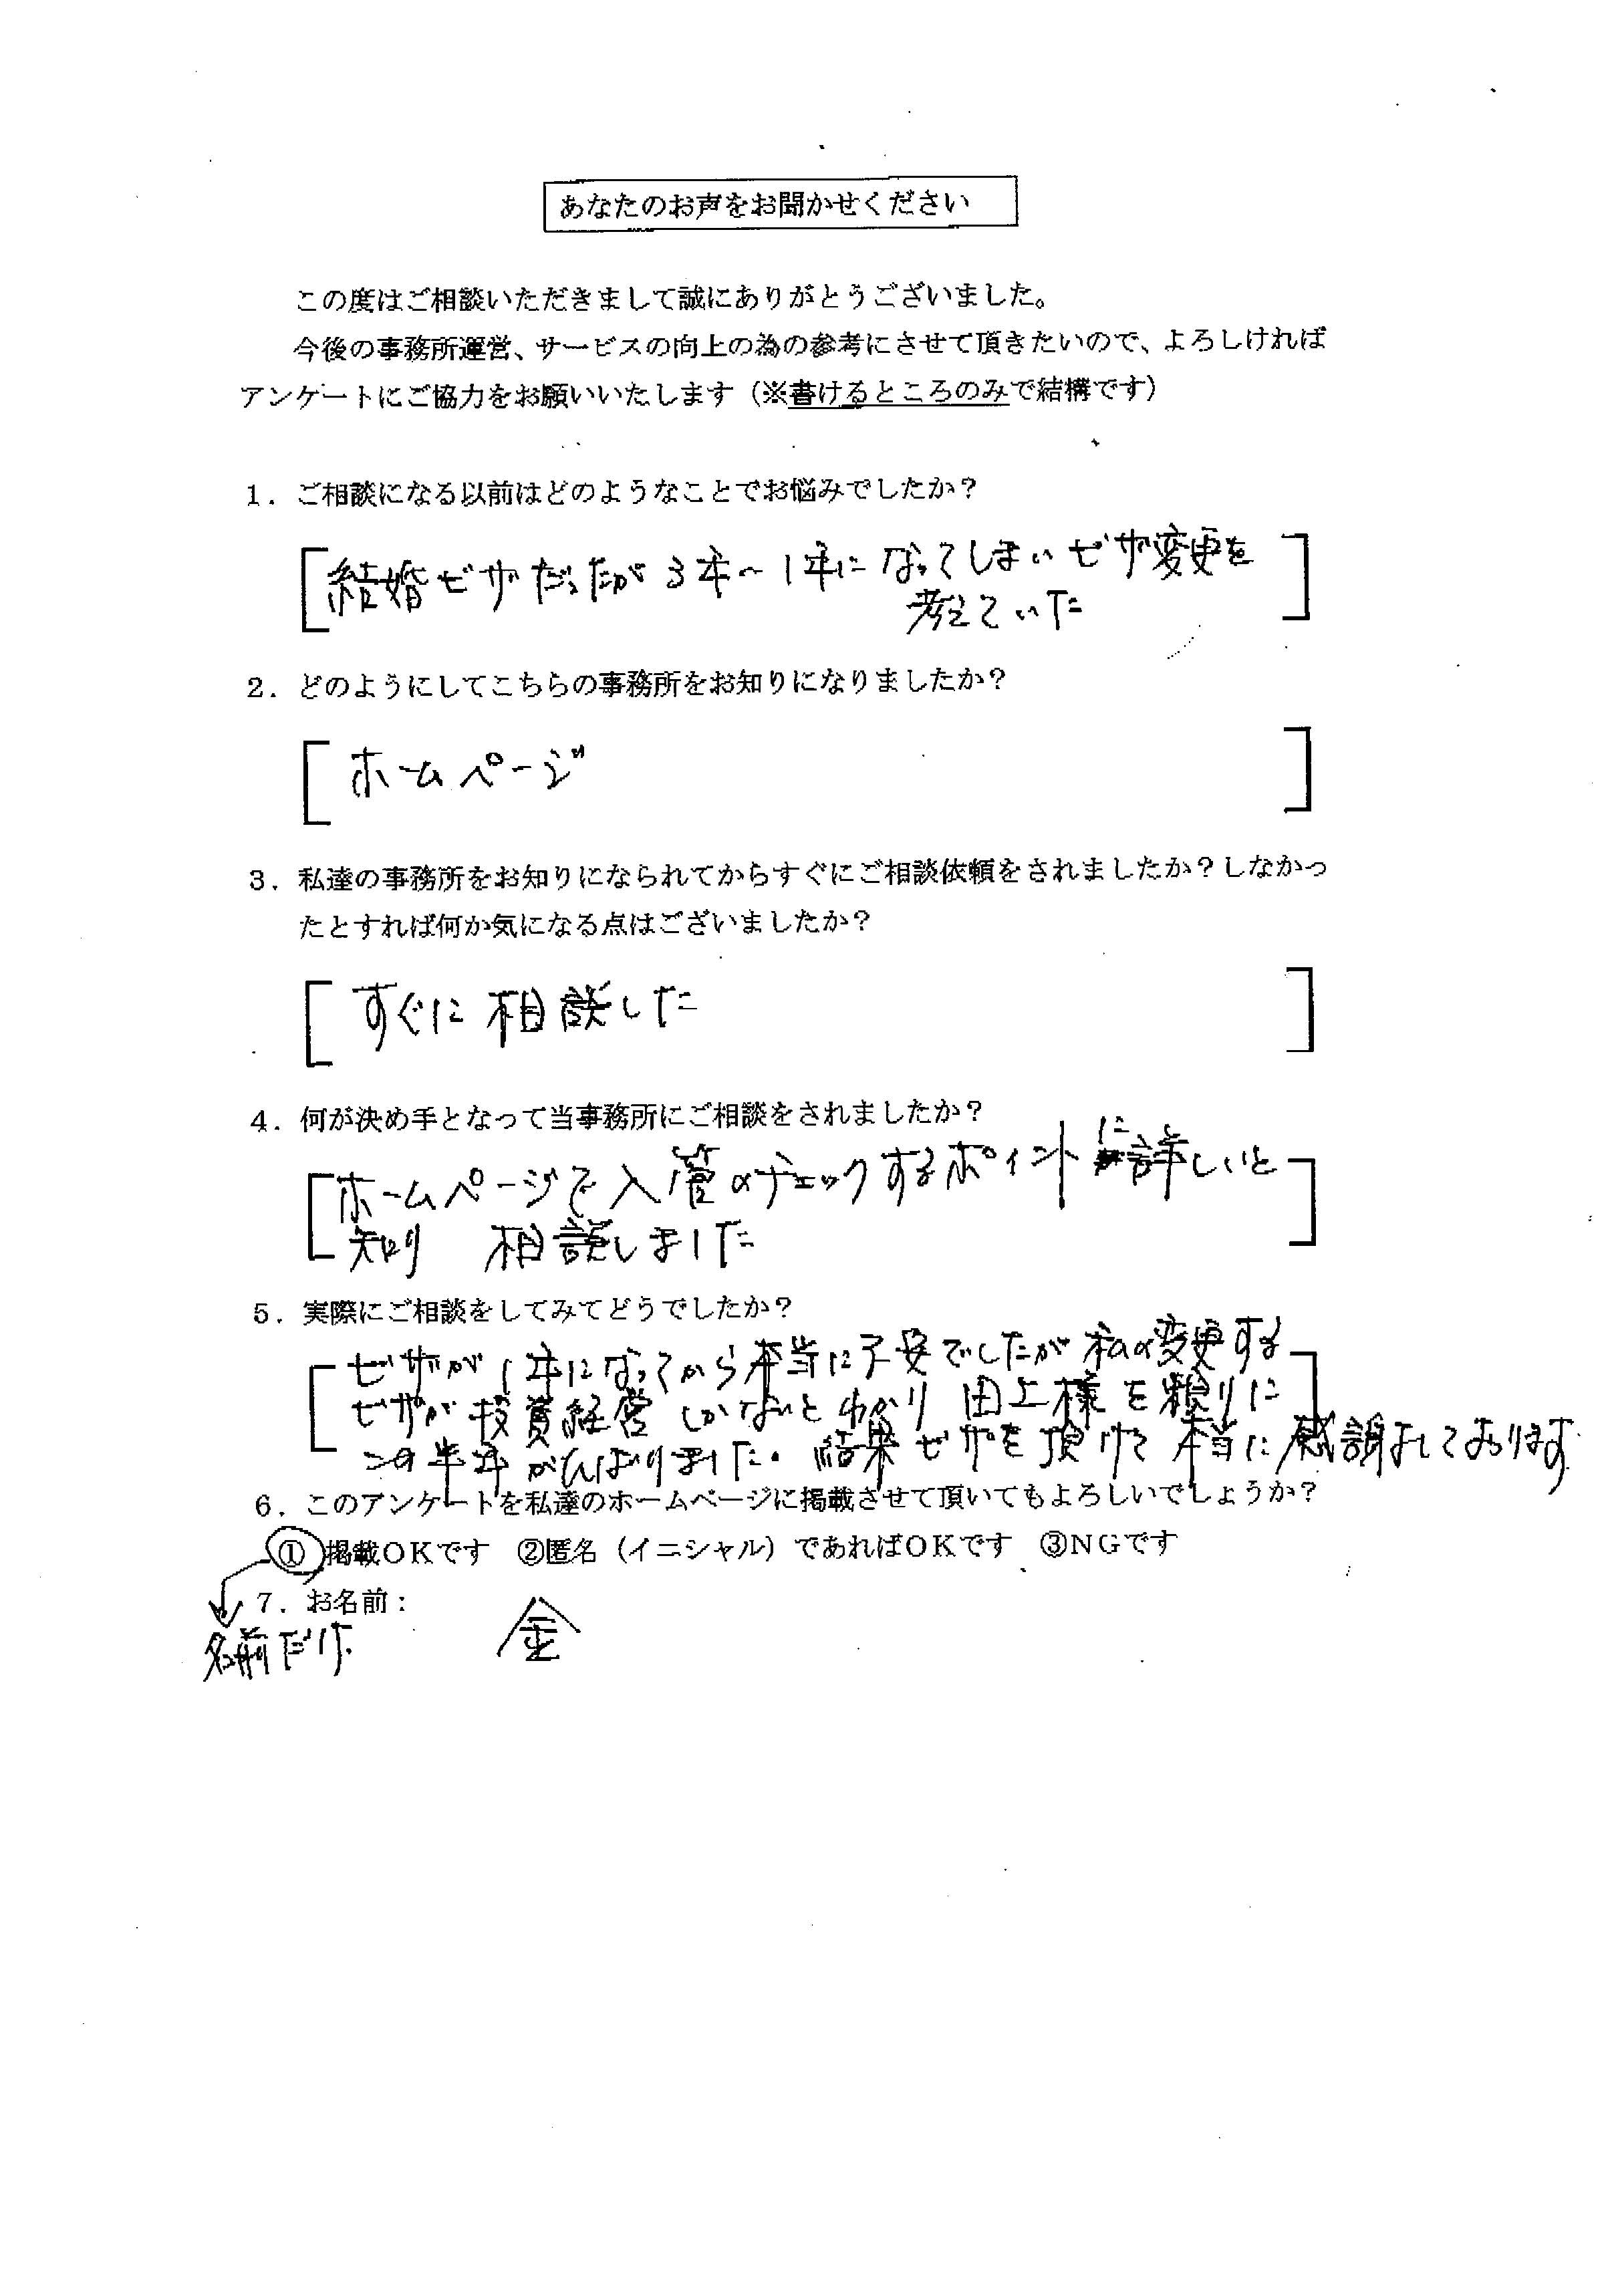 あなたのお声をお聞かせください
この度はご相談いただきまして誠にありがとうございました。
今後の事務所運営、サービスの向上の為の参考にさせて頂きたいので、よろしければ
アンケートにご協力をお願いいたします（※書けるところのみで結構です）
1．ご相談になる以前はどのようなことでお悩みでしたか？
結婚ビザだったが3年〜1年になってしまいビザ変更を
考えていた
2．どのようにしてこちらの事務所をお知りになりましたか？
ホームページ
3．私達の事務所をお知りになられてからすぐにご相談依頼をされましたか？しなかっ
たとすれば何か気になる点はございましたか？
すぐに相談した
4．何が決め手となって当事務所にご相談をされましたか？
ホームページで入管のチェックするポイントに詳しいと
知り 相談しました
5．実際にご相談をしてみてどうでしたか？
ビザが1年になってから本当に不安でしたが私の変更する
ビザが投資経営しかないとわかり 田上様を頼りに
この半年がんばりました。結果ビザを頂けて本当に感謝しております
6．このアンケートを私達のホームページに掲載させて頂いてもよろしいでしょうか？
①掲載ＯＫです ②匿名（イニシャル）であればＯＫです ③ＮＧです
7．お名前：
名前だけ 金